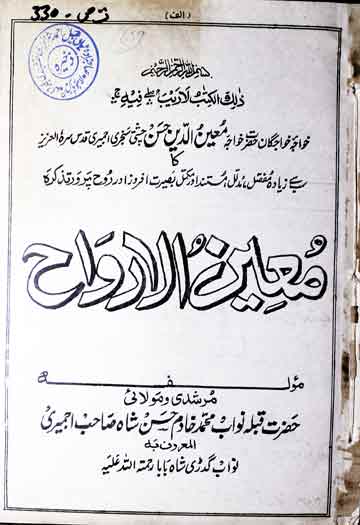 (الف)
ق ح - 330
بسم اللہ الرحمن الرحیم
ذٰلک الکتٰب لا ریب فیہ
خواجۂ خواجگان حضرت خواجہ معین الدین حسن چشتی سنجری اجمیری قدس سرہ العزیز
کا
سب سے زیادہ مفصل، مدلل، مستند اور مکمل بصیرت افروز اور روح پرور تذکرہ
معین الارواح
مؤلفہ
مرشدی و مولائی
حضرت قبلہ نواب محمد خادم حسن شاہ صاحب اجمیری
المعروف بہ
نواب گدڑی شاہ بابا رحمتہ اللہ علیہ